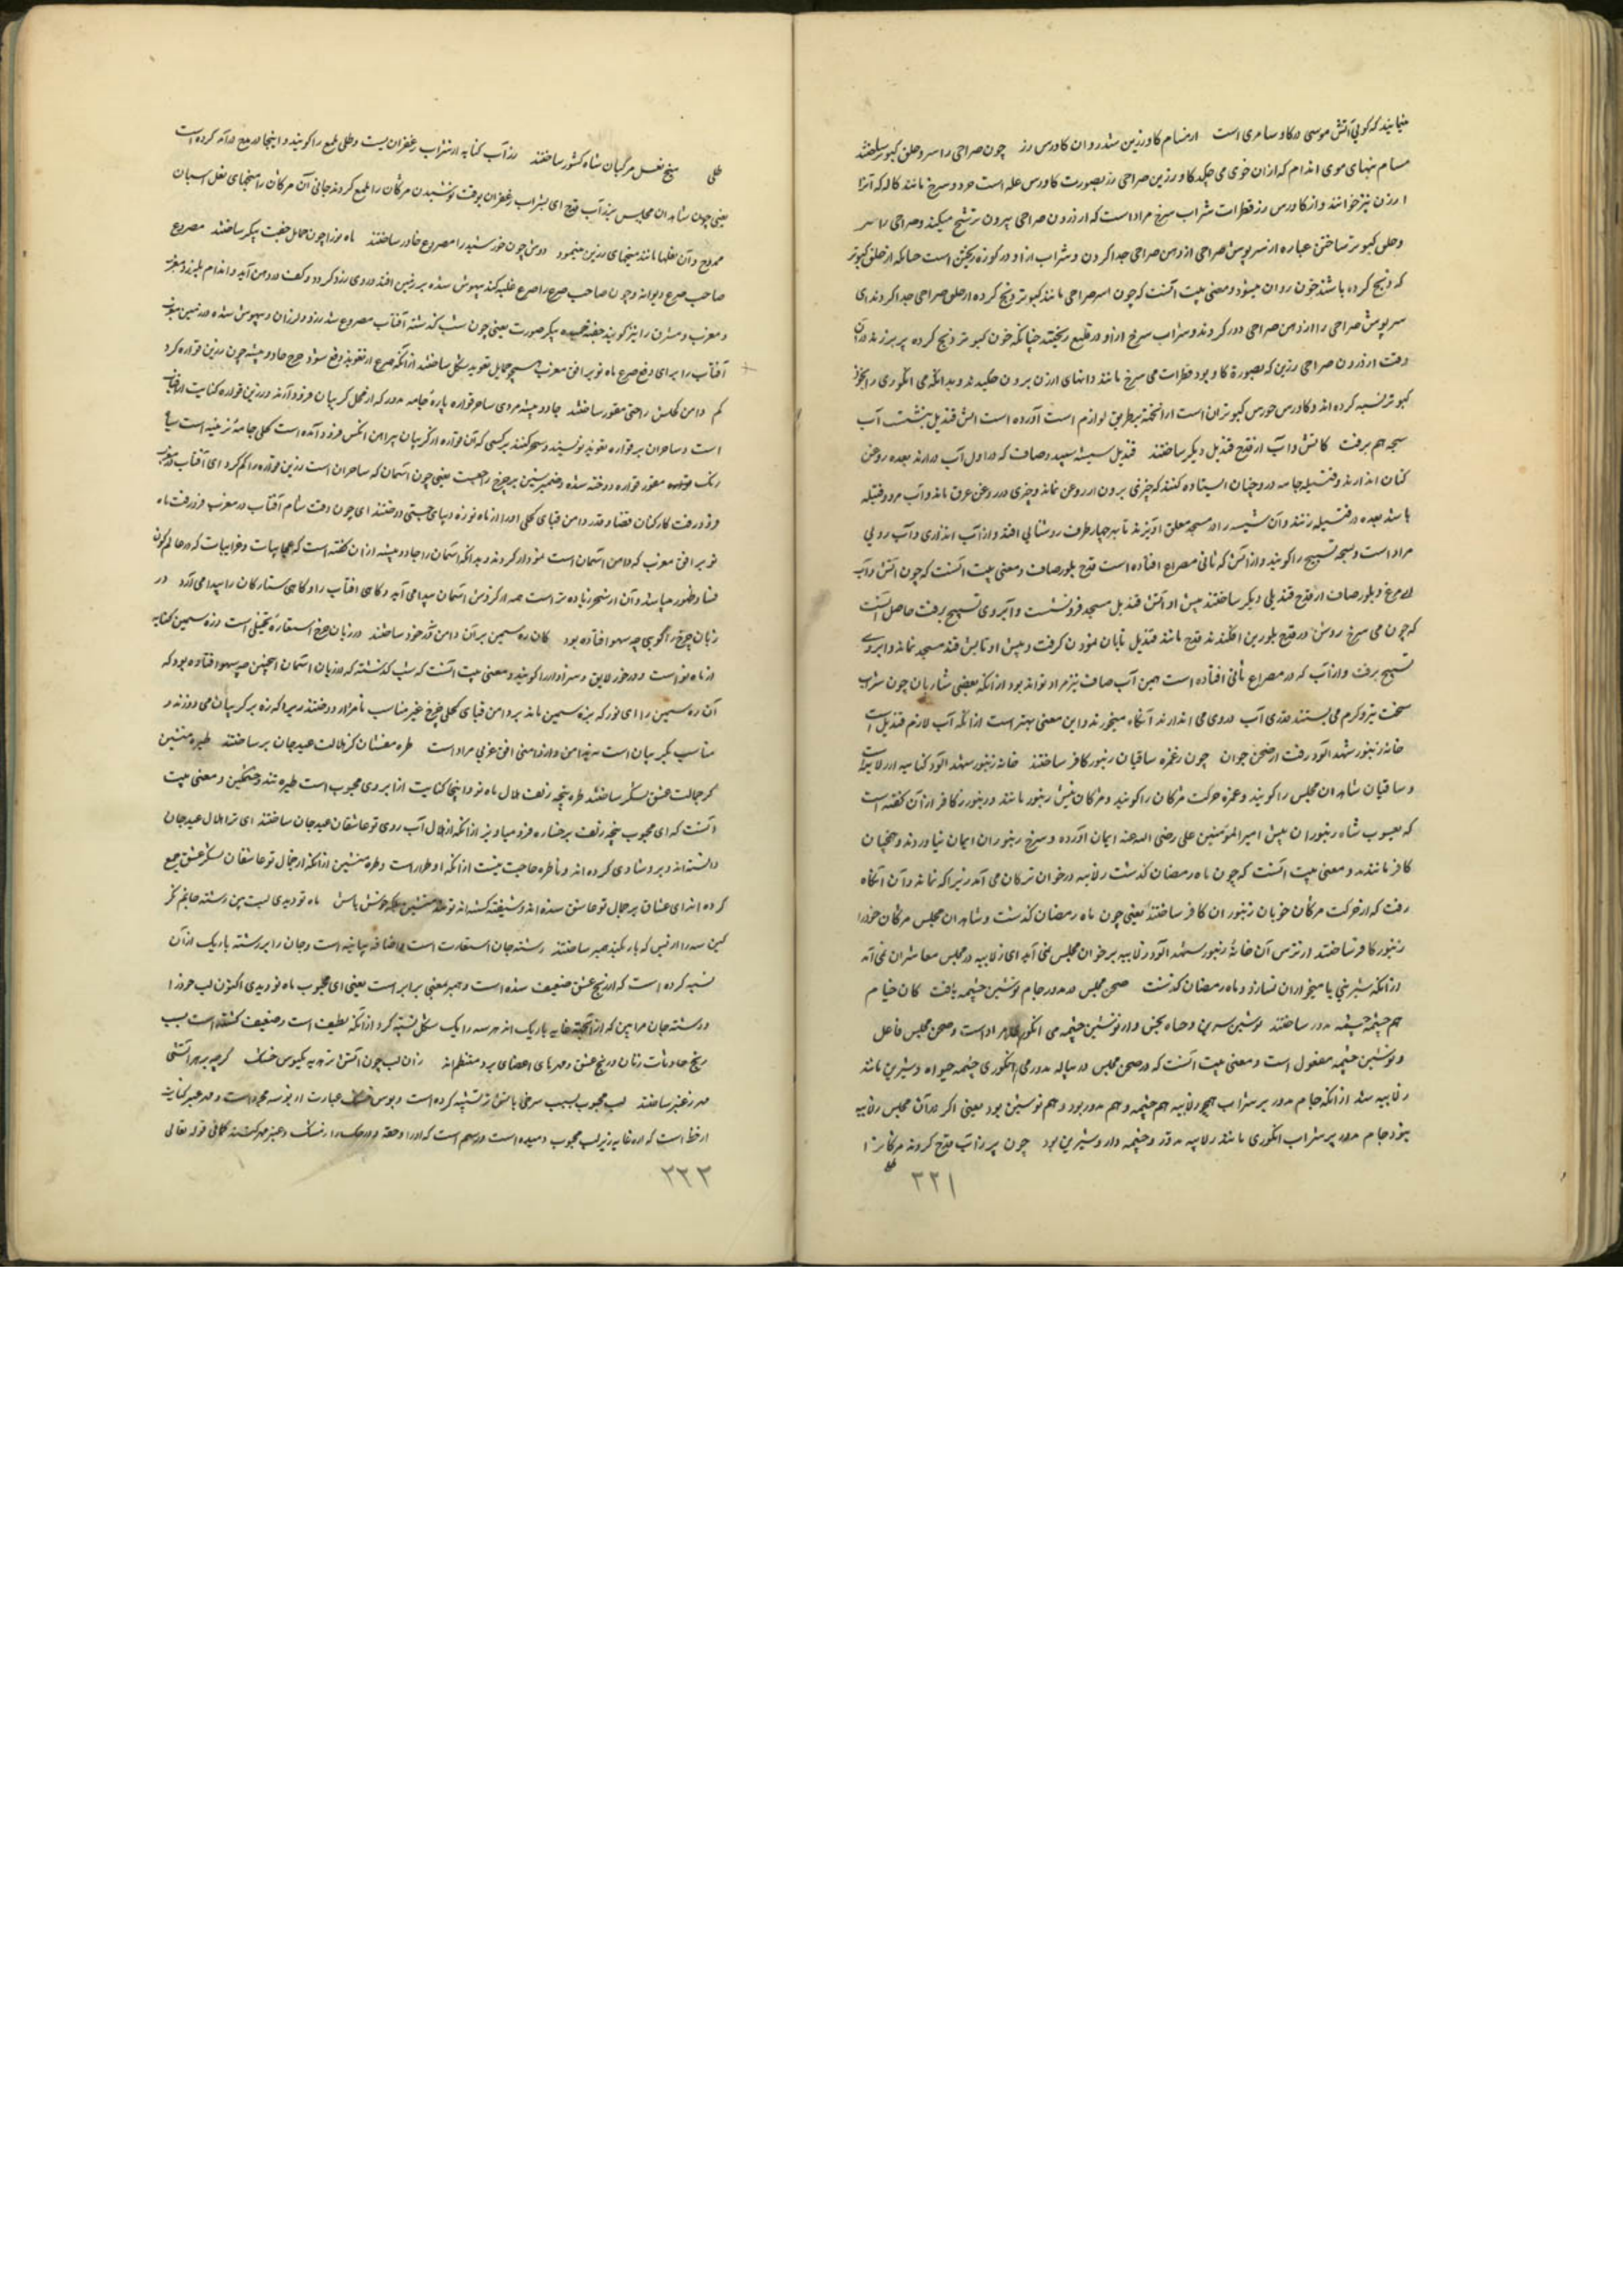 مینمایند که گویی آتش موسی در گاو سامری است ارمسام گاو زرین شد روان گاورس زر چون صراحی را سر و حلق کبوتر ساختند
مسام بنهای موی اندام که ازان خوی می چکد گاو زرین صراحی زر بصورت گاورس غله است خرد و سرخ مانند کال که آنرا
ارزن نیز خوانند و از گاورس زر قطرات شراب سرخ مراد است که از درون صراحی بیرون ترشح میکند و صراحی را سر
و حلق کبوتر ساختن عباره از سرپوش صراحی از دهن صراحی جدا کردن و شراب از او در کوزه ریختن است چنانکه از حلق کبوتر
که ذبح کرده باشند خون روان میشود و معنی بیت آنست که چون سر صراحی مانند کبوتر ذبح کرده از حلق صراحی جدا کردند ای
سرپوش صراحی را از دهن صراحی دور کردند و شراب سرخ از او در قلیع ریختند چنانکه خون کبوتر ذبح کرده پر برزند دران
وقت از درون صراحی زرین که بصورة گاو بود قطرات می سرخ مانند دانهای ارزن برون چکیدند و بدانکه می انگوری را بخون
کبوتر تشبیه کرده اند و گاورس خورس کبوتران است ازانجهة بر طریق لوازم است آورده است آتش قندیل بنشست آب
سبحه هم برفت کاتش و آب از قدح قندیل دیگر ساختند قندیل شیشه سپید و صاف که در اول آب در آرند بعده روغن
کنان اندازند و فتیله جامه در و چنان ایستاده کنند که چیزی برون از روغن نماند و چیزی در روغن غرق ماند و آب مرد و فتیله
باشد بعده در فتیله زنند و آن شیشه را در مسجد معلق آویزند تا بهر چهار طرف روشنایی افتد و از آب اندازی و آب رویی
مراد است و سبحه تسبیح را گویند و از آتش که ثانی مصراع افتاده است قدح بلور صاف و معنی بیت آنست که چون آتش و آب
می سرخ و بلور صاف از قدح قندیلی دیگر ساختند پیش او آتش قندیل مسجد فرو نشست و آبروی تسبیح برفت حاصل آنست
که چون می سرخ روشن در قدح بلورین افکندند قدح مانند قندیل تابان نمودن گرفت و پیش او تابش قندیل مسجد نماند و ابروے
تسبیح برفت و از آب که در مصراع ثانی افتاده است همین آب صاف نیز مراد تواند بود از انکه بعضی شاربان چون شراب
سخت تیز و گرم می بیننند قدری آب در وی می اندازند آنگاه میخورند و این معنی بهتر است از انکه آب لازم قندیل است
خانه زنبور شهد آلود رفت از صحن خوان چون ز غمزه ساقیان زنبور کافر ساختند خانه زنبور شهد آلود کنایه از زلابیه است
و ساقیان شاهدان مجلس را گویند و غمزه حرکت مژگان را گویند و مژگان نیش زنبور مانند و زنبور را کافر ازان گفته است
که یعسوب شاه زنبوران پیش امیر المومنین علی رضی الله عنه ایمان آورده و سرخ زنبوران ایمان نیاوردند و همچنان
کافر ماندند و معنی بیت آنست که چون ماه رمضان گذشت زلابیه در خوان ترکان می آمد زیرا که نماند و آن آنگاه
رفت که از حرکت مژگان خوبان زنبوران کافر ساختند یعنی چون ماه رمضان گذشت و شاهدان مجلس مژگان خود را
زنبور کافر ساختند از ترس آن خانهٔ زنبور شهد آلود زلابیه بر خوان مجلس نمی آید ای زلابیه در مجلس معاشران نمی آید
از آنکه شیرینی با میخواران نسازد و ماه رمضان گذشت صحن مجلس در مدور جام نوشین چشمه یافت کان ختام
هم چشمه چشمه مدور ساختند نوشین شیرین و حیاة بخش و از نوشین چشمه می انگوری مراد است و صحن مجلس فاعل
و نوشین چشمه مفعول است و معنی بیت آنست که در صحن مجلس در پیاله مدور می انگوری چشمه حیوان و شیرین مانند
زلابیه شد از انکه جام مدور بر شراب همچو زلابیه هم چشمه و هم مدور بود و هم نوشین بود یعنی اگر دران مجلس زلابیه
نبود جام مدور پر شراب انگوری مانند زلابیه مدور و چشمه دار و شیرین بود چون پر زاب قدح کردند مژگانرا
طلی
۲۲۱
طلی میخ نعل مرکبان شاه کشور ساختند زر آب کنایه از شراب زعفران یست و طلی ملمع را گویند و اینجا در مدح در آمد کرده است
یعنی چون شاهدان مجلس بزر آب قدح ای بشراب زعفران بوقت نوشیدن مژگان را ملمع کردند جانی آن مژگان را میخهای نعل اسبان
ممدوح و آن نعلها مانند میخهای زرین مینمود دوش چون خورشید را مصروع خاور ساختند ماه نو را چون حمایل جفت پیکر ساختند مصروع
صاحب صرع دیوانه و چون صاحب صرع را صرع غلبه کند بیهوش شده بر زمین افتد و روی زرد گردد و کف در دهن آید و اندام بلرزد
و مغرب و مشرق را نیز گویند جفته خمیده پیکر صورت یعنی چون شب گذشته آفتاب مصروع شد زرد و لرزان و بیهوش شده در زمین مغرب
آفتاب را برای دفع صرع ماه نو بر افق مغرب همچو حمایل تعویذ شکل ساختند از انکه صرع از تعویذ دفع شود چرخ جادو پیشه چون زرین قواره کرد
کم دامن کحلیش را جیب مقور ساختند جادو پیشه مردی ساحر قواره پارهٔ جامه مدور که از محل گریبان فرود آرند و زرین قواره کنایت از آفتاب
است و ساحران بر قواره تعویذ نویسند و سحر کنند بر کسی که آن قواره از گریبان پیراهن آنکس فرود آمده است کحلی جامهٔ زرینه است سیاه
رنگ مقور قواره دوخته شده و ضمیر شین بر چرخ راجعست یعنی چون آسمان که ساحران است زرین قواره را کم کرد ای آفتاب در مغرب
فرو رفت کارکنان قضا و قدر دامن قبای کحلی او را از ماه نو زه دیبای جیبی دوختند ای چون وقت شام آفتاب در مغرب فرو رفت ماه
نو بر افق مغرب که دامن آسمان است نمودار کردند و بدانکه آسمان را جادو پیشه ازان گفته است که عجایبات و غرایبات که در عالم کون
فساد ظهور میباشد و آن از سحر زیاده تر است همه از گردش آسمان پیدا می آید و گاهی افتاب را و گاهی ستارگان را پیدا می آرد در
زبان چرخ را گویی چه سهو افتاده بود کان زه سیمین بر آن دامن نه در خور ساختند در زبان چرخ استعارة تخییلی است و زه سیمین کنایه
از ماه نو است و در خور لایق و سزاوار را گویند و معنی بیت آنست که شب گذشته که در زبان آسمان اینچنین چه سهو افتاده بود که
آن زه سیمین را ای نور که بزه سیمین ماند بر دامن قبای کحلی چرخ غیر مناسب نامزاد دوختند زیرا که زه بر گریبان می دوزند و
مناسب بگریبان است نه بدامن و از دامن افق غربی مراد است طره مفشان کز هلالت عید جان بر ساختند طیره منشین
کز جمالت عشق لشکر ساختند طره پنجه زلف هلال ماه نو و اینجا کنایت از ابروی محبوب است طیره تند و خشمگین و معنی بیت
آنست که ای محبوب پنجه زلف بر رخساره فرو میاویز از آنکه از هلال آب روی تو عاشقان عید جان ساختند ای ترا هلال عید جان
دانسته اند و بر و شادی کرده اند و باطره حاجت نیست از انکه او طرار است و طیره منشین از انکه از جمال تو عاشقان لشکر عشق جمع
کرده اند ای عشاق بر جمال تو عاشق شده اند و شیفته گشته اند تو تند منشین بلکه خوش باش ماه نو دیدی لبت بین رشته جانم نگر
کین سه را از بس که باریکند همبر ساختند رشته جان استعارت است با اضافه بیانیه است و جان را بر رشته باریک از آن
تشبیه کرده است که از رنج عشق ضعیف شده است و همبر بمعنی برابر است یعنی ای محبوب ماه نو دیدی اکنون لب خود را
و رشته جان مرا بین که از انجهة غایه باریک اند هر سه را یک شکل تشبیه کرد از انکه لطیف است و ضعیف گشته است بسبب
رنج حادثات زمان و رنج عشق و مهرهای اعضای برد منتظم اند زان لب چون آتش تر هدیه یکبوس خشک گرچه بر هر آتشی
مهر ز عنبر ساختند لب محبوب بسبب سرخی باتش تر تشبیه کرده است و بوس خشک عبارت از بوسه مجرد است و مهر عنبر کنایت
از خط است که از غایه زیر لب محبوب دمیده است و رسم است که او را و حقه و درجک را از مشک و عنبر مهر کنند کانی قوله تعالی
۲۲۲